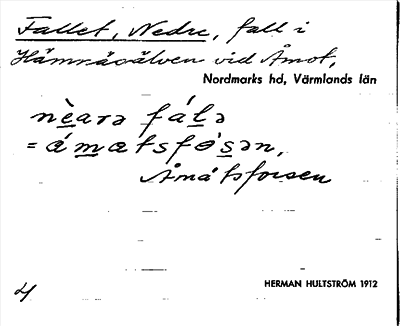 Fallet, Nedre, fall i
Hämnäsälven vid Åmot,
Nordmarks hd, Värmlands län
nèarə fálə
= ámatsfósən,
Åmåtsforsen
HERMAN HULTSTRÖM 1912